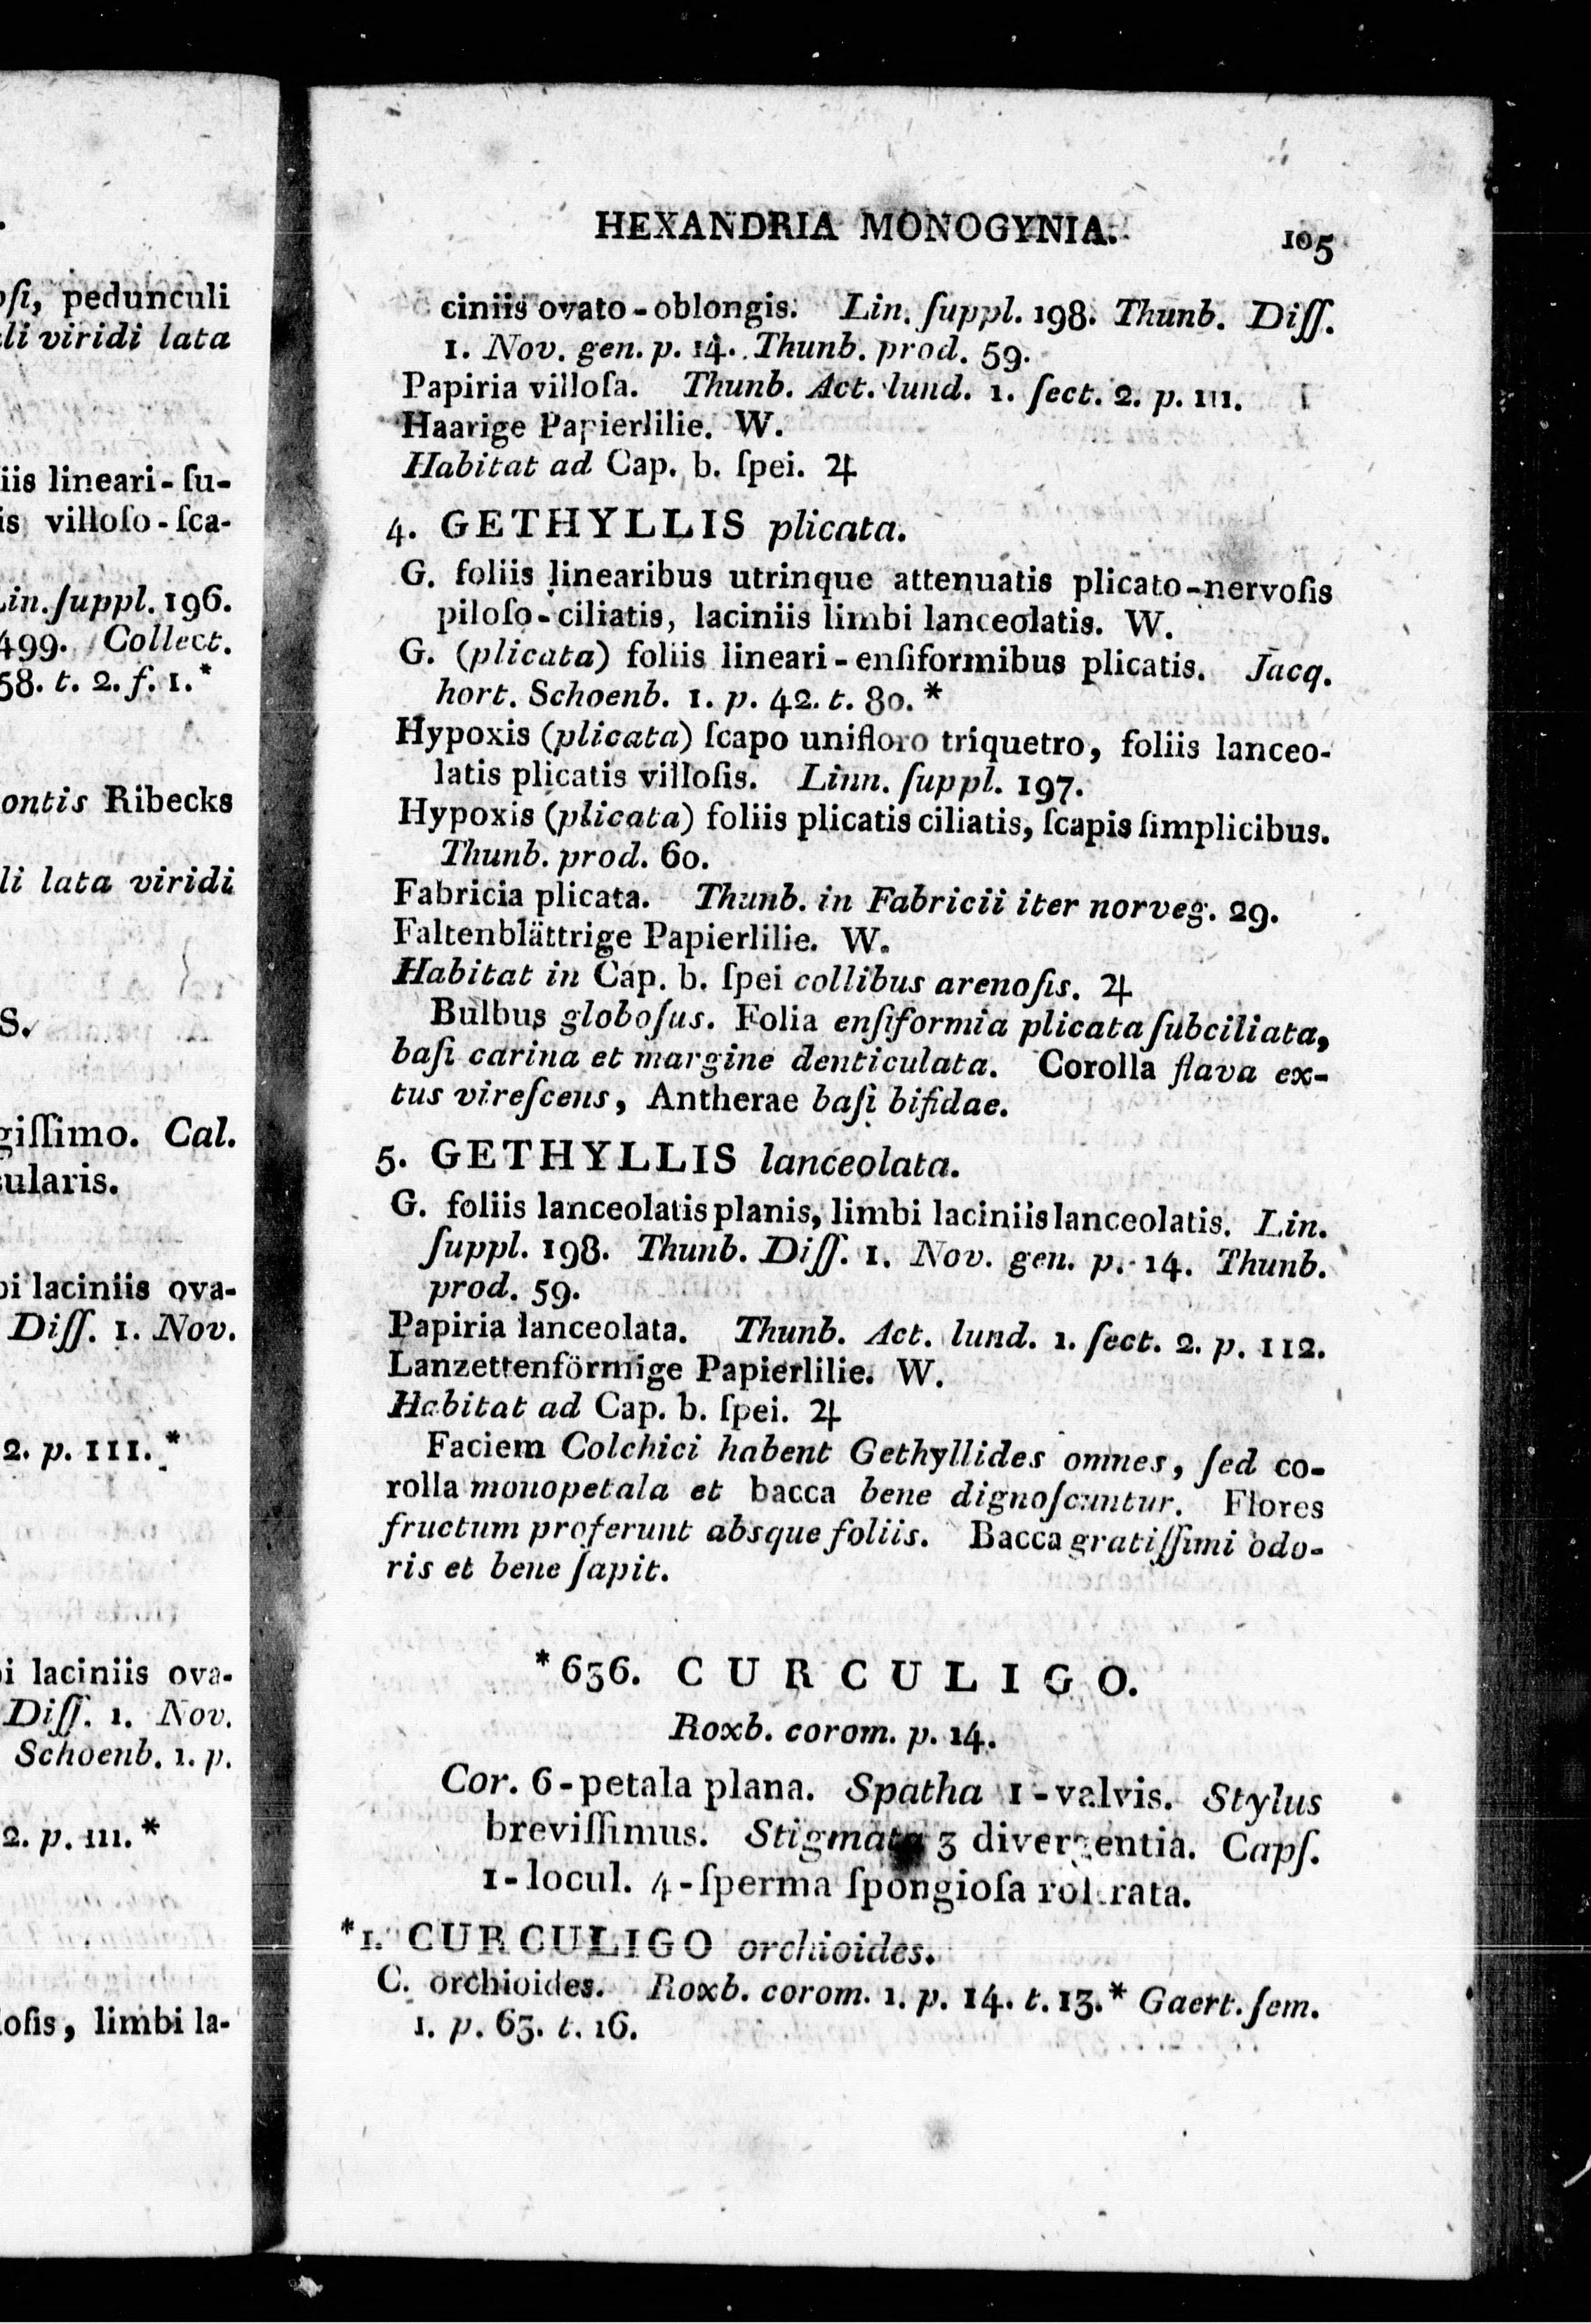 .
oſi, pedunculi
li viridi lata
iis lineari-ſu-
is villoſo-ſca-
Lin. ſuppl. 196.
499. Collect.
58. t. 2. f. 1.*
ontis Ribecks
li lata viridi
S.
giſſimo. Cal.
ularis.
bi laciniis ova-
Diſſ. 1. Nov.
2. p. 111.*
i laciniis ova-
Diſſ. 1. Nov.
Schoenb. 1. p.
2. p. 111.*
loſis, limbi la-
HEXANDRIA MONOGYNIA. 105
ciniis ovato-oblongis. Lin. ſuppl. 198. Thunb. Diſſ.
1. Nov. gen. p. 14. Thunb. prod. 59.
Papiria villoſa. Thunb. Act. lund. 1. ſect. 2. p. 111.
Haarige Papierlilie. W.
Habitat ad Cap. b. ſpei. ♃
4. GETHYLLIS plicata.
G. foliis linearibus utrinque attenuatis plicato-nervoſis
piloſo-ciliatis, laciniis limbi lanceolatis. W.
G. (plicata) foliis lineari-enſiformibus plicatis. Jacq.
hort. Schoenb. 1. p. 42. t. 80.*
Hypoxis (plicata) ſcapo unifloro triquetro, foliis lanceo-
latis plicatis villoſis. Linn. ſuppl. 197.
Hypoxis (plicata) foliis plicatis ciliatis, ſcapis ſimplicibus.
Thunb. prod. 60.
Fabricia plicata. Thunb. in Fabricii iter norveg. 29.
Faltenblättrige Papierlilie. W.
Habitat in Cap. b. ſpei collibus arenoſis. ♃
Bulbus globoſus. Folia enſiformia plicata ſubciliata,
baſi carina et margine denticulata. Corolla flava ex-
tus vireſcens, Antherae baſi bifidae.
5. GETHYLLIS lanceolata.
G. foliis lanceolatis planis, limbi laciniis lanceolatis. Lin.
ſuppl. 198. Thunb. Diſſ. 1. Nov. gen. p. 14. Thunb.
prod. 59.
Papiria lanceolata. Thunb. Act. lund. 1. ſect. 2. p. 112.
Lanzettenförmige Papierlilie. W.
Habitat ad Cap. b. ſpei. ♃
Faciem Colchici habent Gethyllides omnes, ſed co-
rolla monopetala et bacca bene dignoſcuntur. Flores
fructum proferunt absque foliis. Bacca gratiſſimi odo-
ris et bene ſapit.
*636. CURCULIGO.
Roxb. corom. p. 14.
Cor. 6-petala plana. Spatha 1-valvis. Stylus
breviſſimus. Stigmata 3 divergentia. Capſ.
1-locul. 4-ſperma ſpongioſa roſtrata.
*1. CURCULIGO orchioides.
C. orchioides. Roxb. corom. 1. p. 14. t. 13.* Gaert. ſem.
1. p. 63. t. 16.